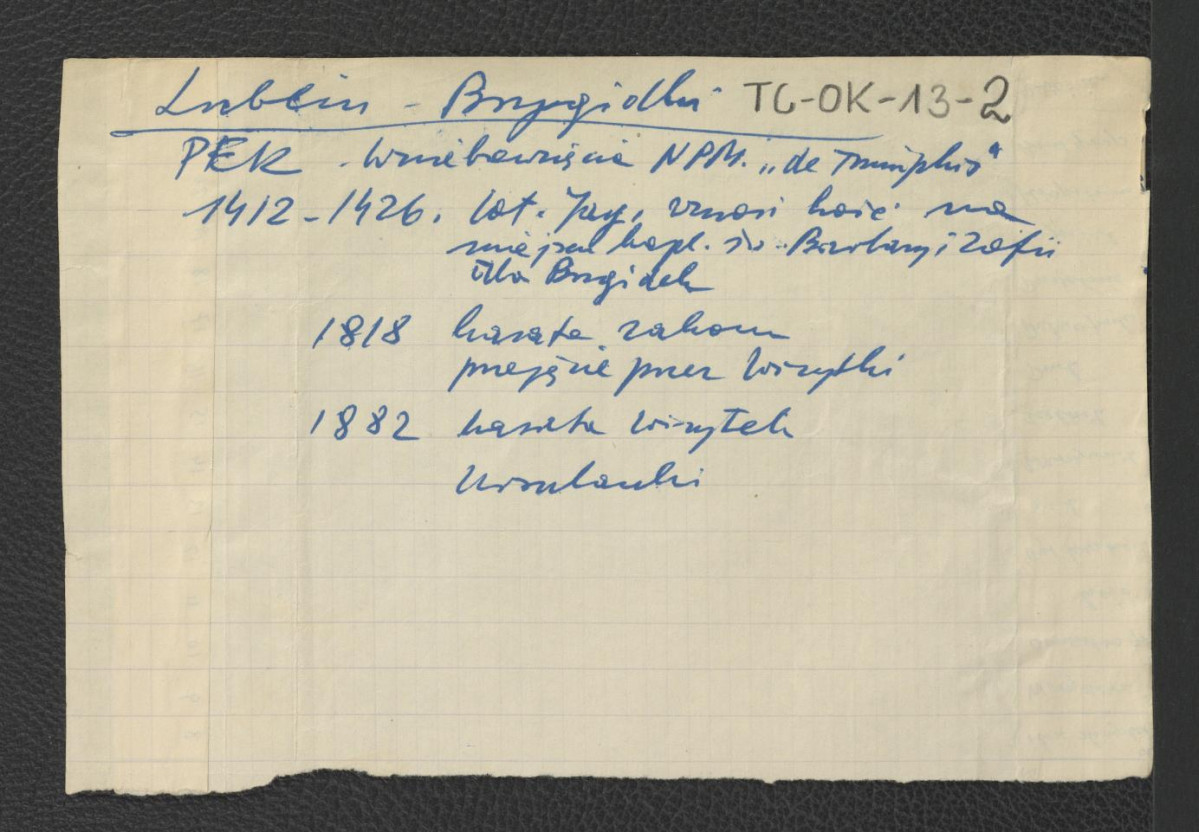 Lublin - Brygidki TG-OK-13-2
PEK. Wniebowzięcia NPM. „de Triumphis"
1412-1426. Wł. Jag. wznosi kość. na
miejscu kapl. św. Barbary i Zofii
dla Brygidek
1818 kasata zakonu
przejęcie przez Wizytki
1882 kasata Wizytek
Urszulanki